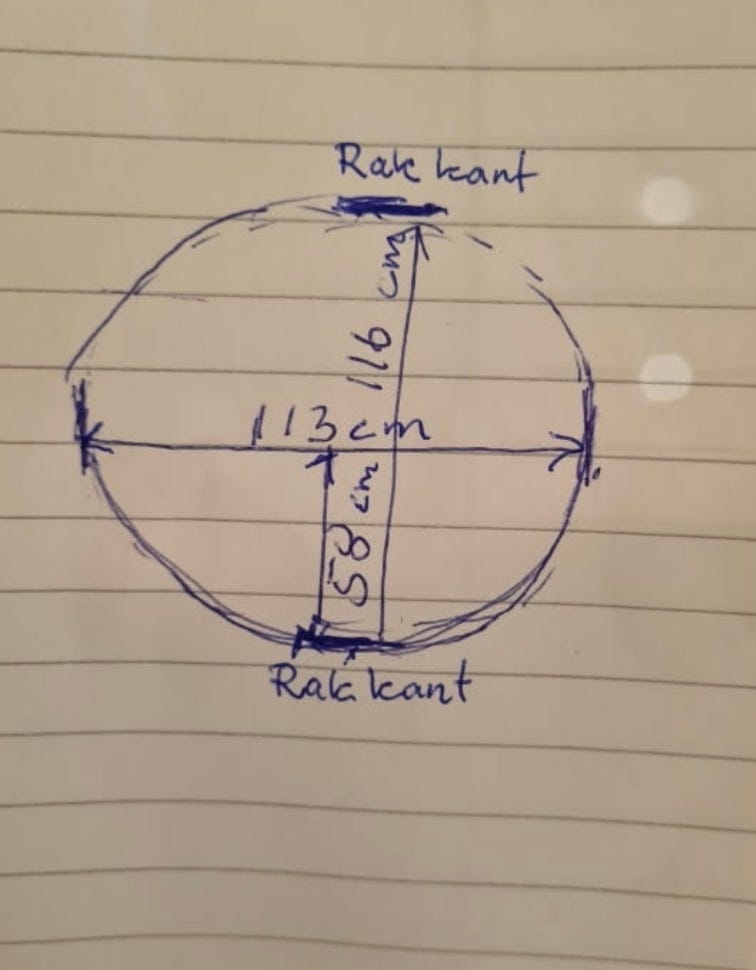 Rak kant
116 cm
113 cm
58 cm
Rak kant